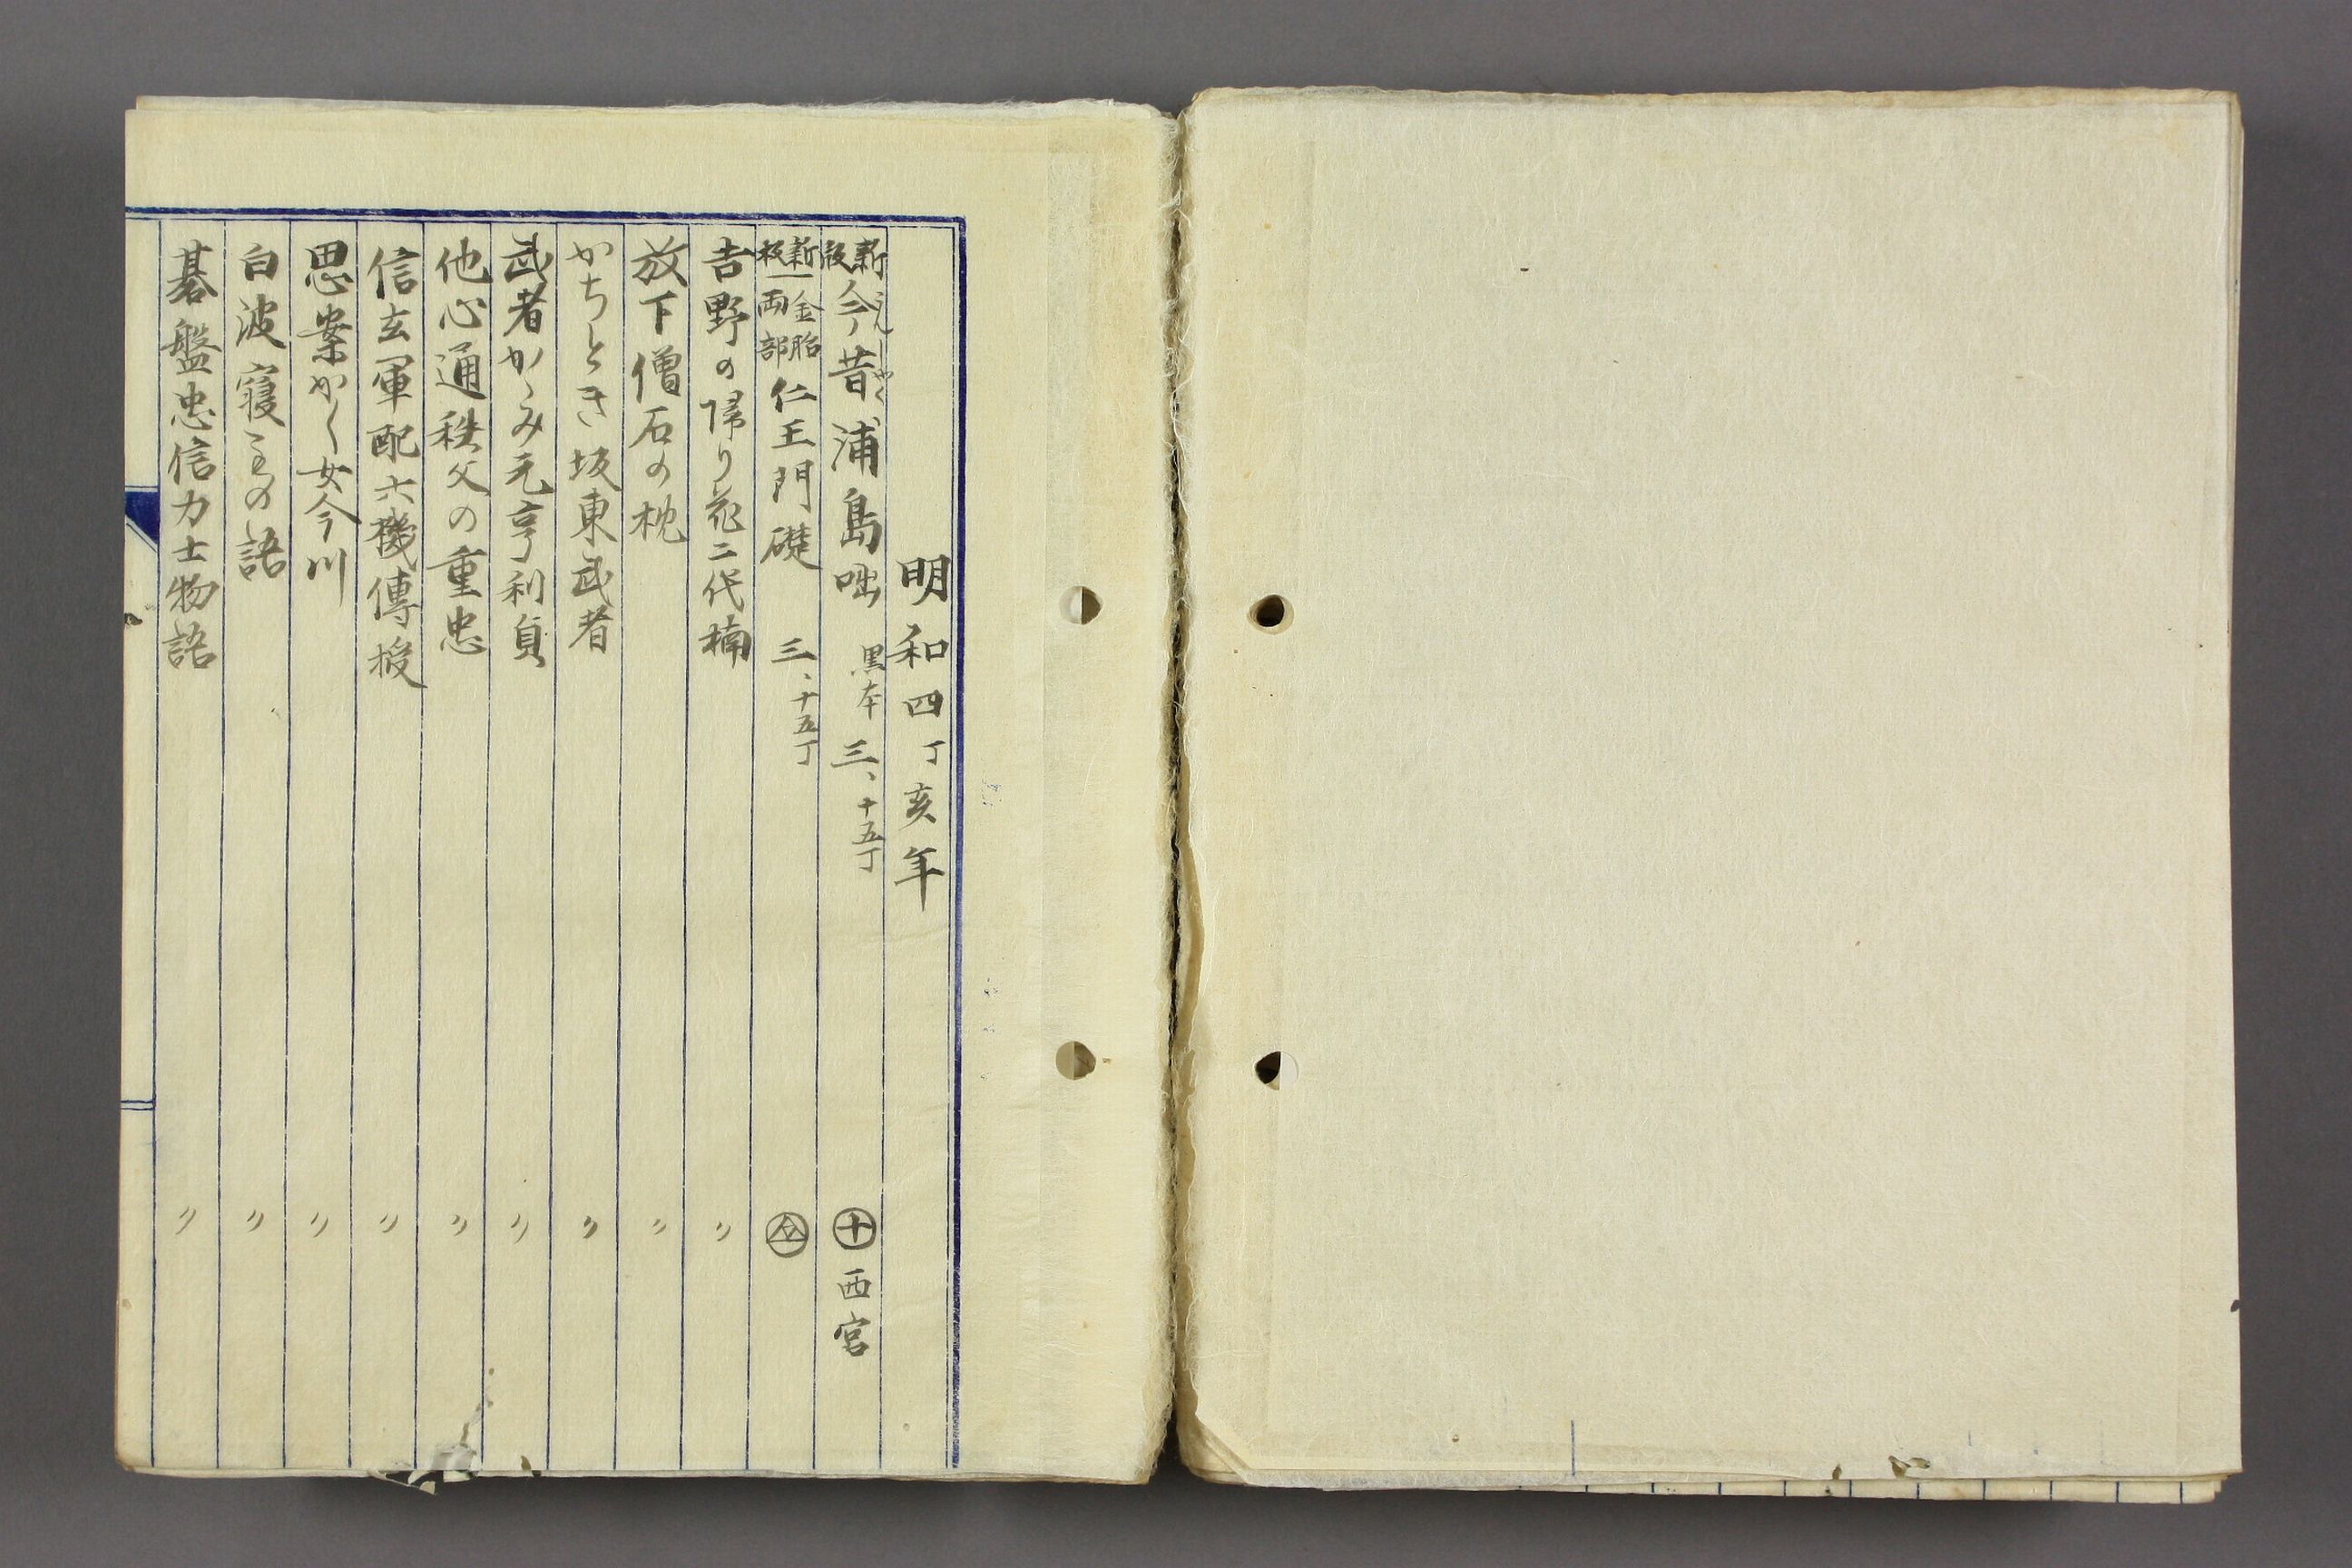 明和四丁亥年
新版 今昔浦島咄 黒本 三、十五丁 ㊉ 西宮
新板 金胎両部 仁王門礎 三、十五丁
吉野の帰り花二代楠 〃
放下僧石の枕 〃
かちとき坂東武者 〃
武者かゝみ元亨利貞 〃
他心通秩父の重忠 〃
信玄軍配六機傳授 〃
思案かく女今川 〃
白波寝もの語 〃
碁盤忠信力士物語 〃